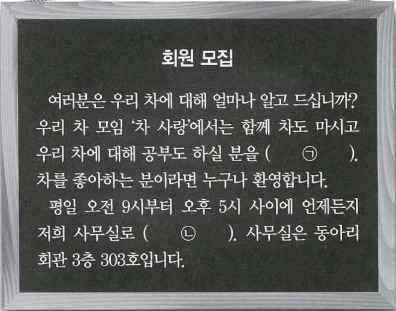 회원 모집
여러분은 우리 차에 대해 얼마나 알고 드십니까?
우리 차 모임 '차 사랑'에서는 함께 차도 마시고
우리 차에 대해 공부도 하실 분을 ( ㉠ ).
차를 좋아하는 분이라면 누구나 환영합니다.
평일 오전 9시부터 오후 5시 사이에 언제든지
저희 사무실로 ( ㉡ ). 사무실은 동아리
회관 3층 303호입니다.